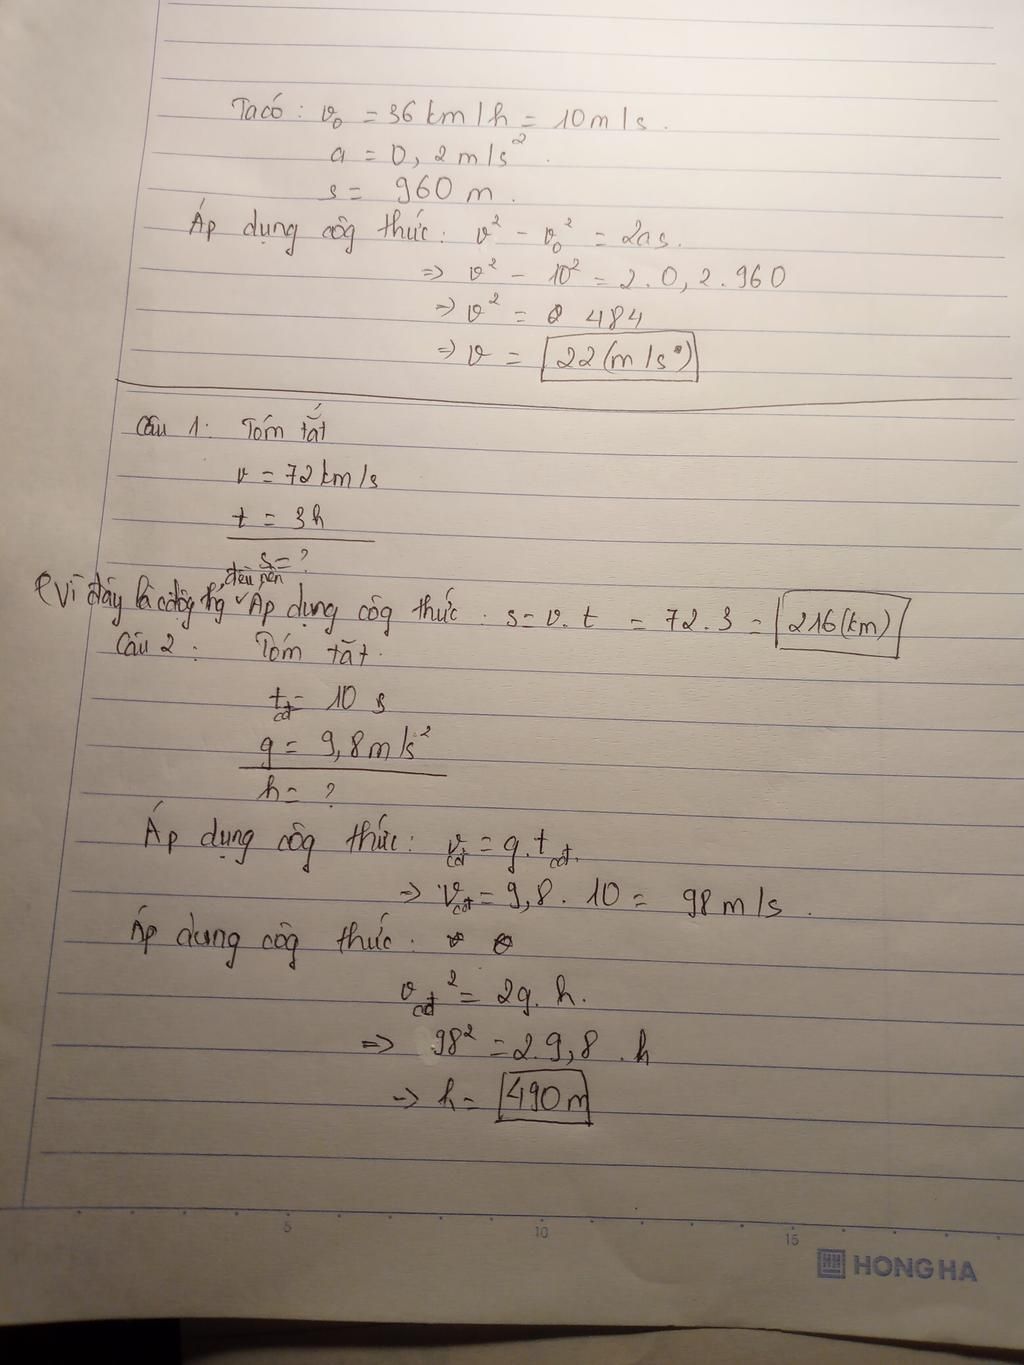 Ta có: v₀ = 36 km/h = 10 m/s.
a = 0,2 m/s².
s = 960 m.
Áp dụng côg thức: v² - v₀² = 2as.
=> v² - 10² = 2.0,2.960
=> v² = 484
=> v = 22 (m/s)
Câu 1: Tóm tắt
v = 72 km/s
t = 3h
s = ?
đều nên
Vì đây là cđộg thg Áp dụng côg thức: s = v.t = 72.3 = 216 (km)
Câu 2: Tóm tắt.
t cđ = 10 s
g = 9,8 m/s²
h = ?
Áp dụng côg thức: v cđ = g.t cđ.
=> v cđ = 9,8.10 = 98 m/s.
Áp dung côg thức:
v cđ² = 2g.h.
=> 98² = 2.9,8.h
=> h = 490 m
5 10 15
HONG HA